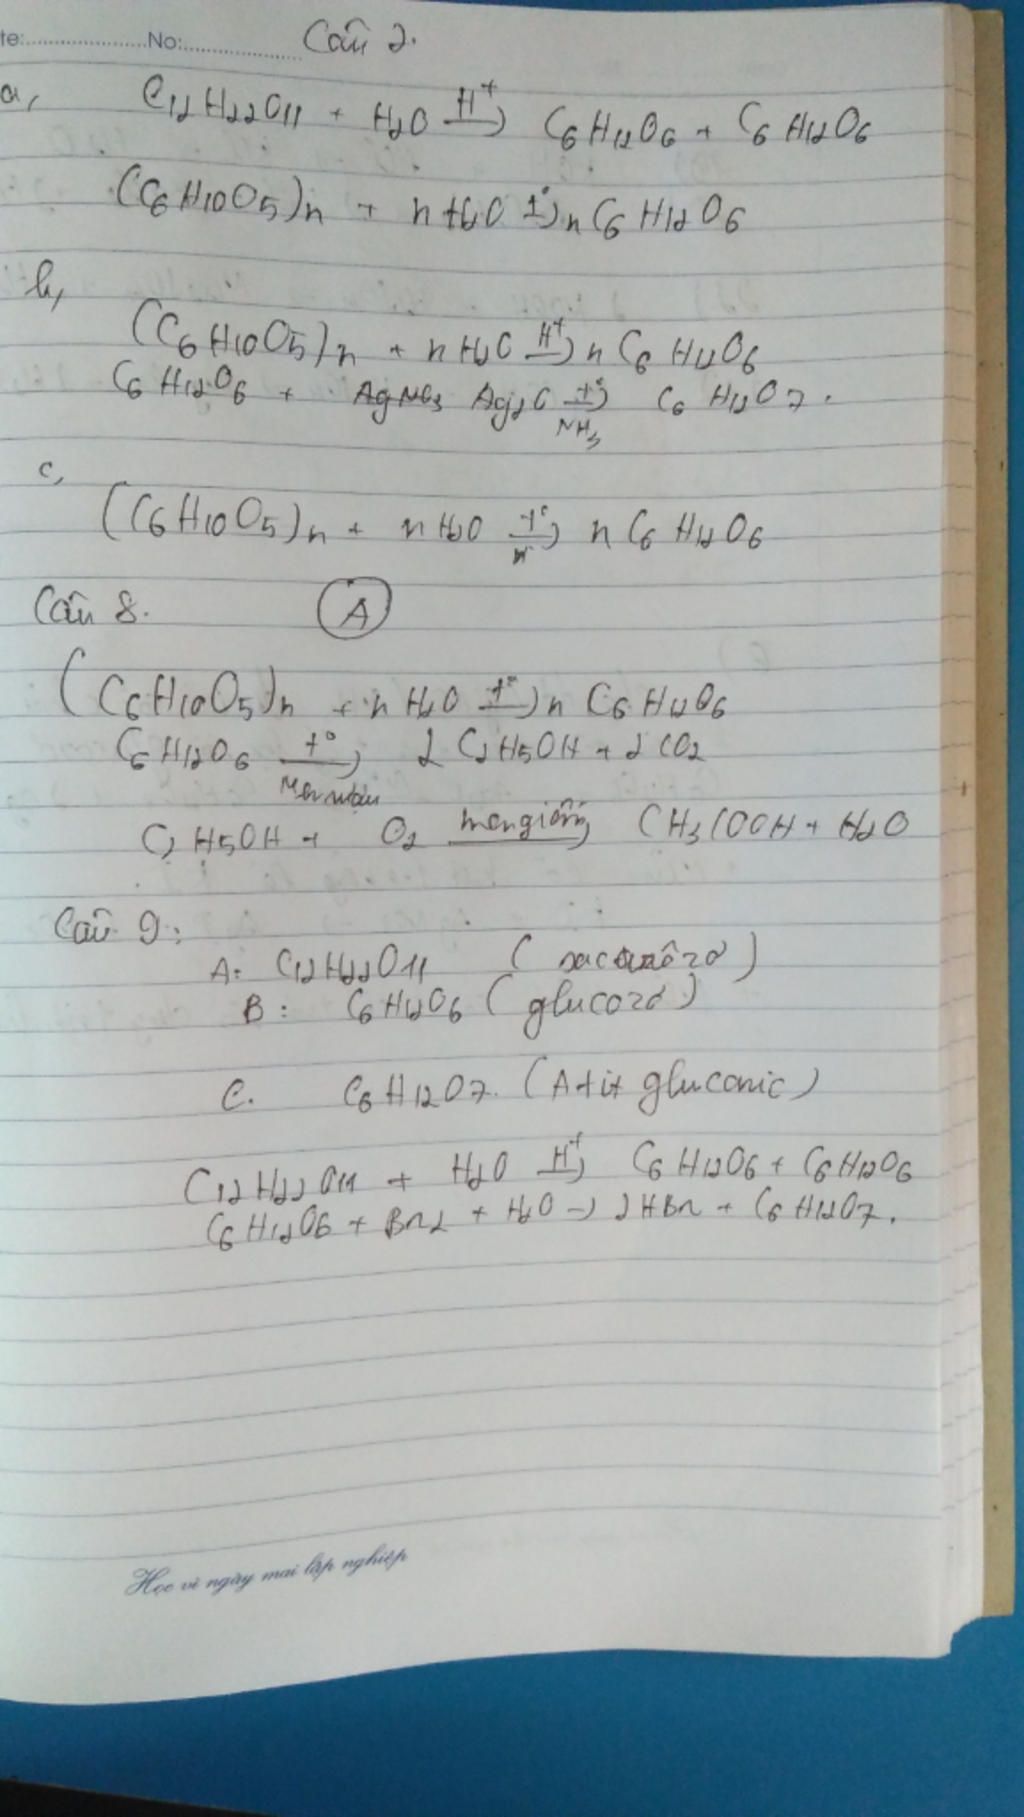 te:..................No:.................. Câu 2.
a, C12H22O11 + H2O H+→ C6H12O6 + C6H12O6
(C6H10O5)n + nH2O t°→ nC6H12O6
b,
(C6H10O5)n + nH2O H+→ nC6H12O6
C6H12O6 + Ag2O t°→ NH3 C6H12O7.
c,
(C6H10O5)n + nH2O t°→ nC6H12O6
Câu 8. A
(C6H10O5)n + nH2O t°→ nC6H12O6
C6H12O6 t°→ 2C2H5OH + 2CO2
Men rượu
C2H5OH + O2 men giấm→ CH3COOH + H2O
Câu 9:
A: C12H22O11 (saccarôzơ)
B: C6H12O6 (glucozơ)
C. C6H12O7. (Axit gluconic)
C12H22O11 + H2O H+→ C6H12O6 + C6H12O6
C6H12O6 + Br2 + H2O → 2HBr + C6H12O7.
Học vì ngày mai lập nghiệp